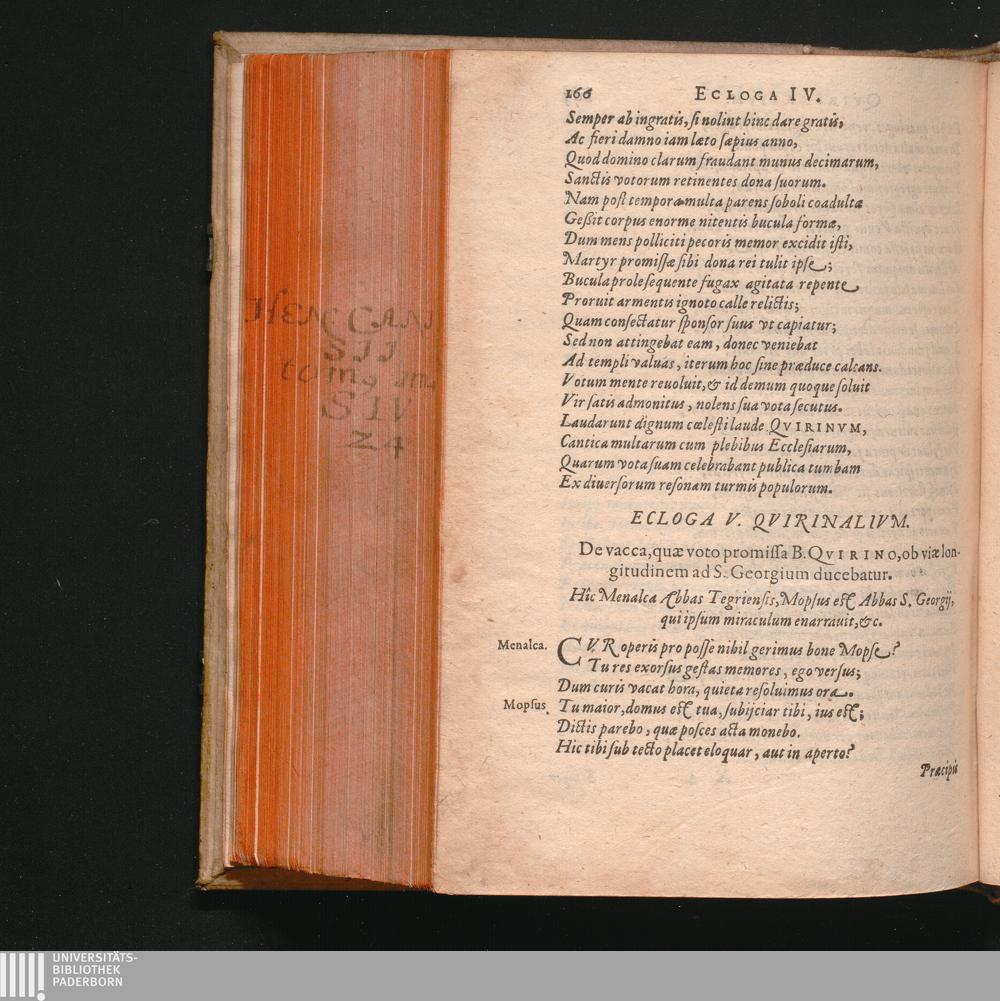 166 ECLOGA IV.
Semper ab ingratis, si nolint hinc dare gratis,
Ac fieri damno iam læto sæpius anno,
Quod domino clarum fraudant munus decimarum,
Sanctis votorum retinentes dona suorum.
Nam post tempora multa parens soboli coadultæ
Geßit corpus enorme nitentis bucula formæ,
Dum mens polliciti pecoris memor excidit isti,
Martyr promissæ sibi dona rei tulit ipse;
Bucula prole sequente fugax agitata repente
Proruit armentis ignoto calle relictis;
Quam consectatur sponsor suus vt capiatur;
Sed non attingebat eam, donec veniebat
Ad templi valuas, iterum hoc sine præduce calcans.
Votum mente reuoluit, & id demum quoque soluit
Vir satis admonitus, nolens sua vota secutus.
Laudarunt dignum cœlesti laude QVIRINVM,
Cantica multarum cum plebibus Ecclesiarum,
Quarum vota suam celebrabant publica tumbam
Ex diuersorum resonam turmis populorum.
ECLOGA V. QVIRINALIVM.
De vacca, quæ voto promissa B. QVIRINO, ob viæ lon-
gitudinem ad S. Georgium ducebatur.
Hîc Menalca Abbas Tegriensis, Mopsus est Abbas S. Georgij,
qui ipsum miraculum enarrauit, &c.
Menalca. CVR operis pro posse nihil gerimus bone Mopse?
Tu res exorsus gestas memores, ego versus;
Dum curis vacat hora, quieta resoluimus ora.
Mopsus. Tu maior, domus est tua, subijciar tibi, ius est;
Dictis parebo, quæ posces acta monebo.
Hic tibi sub tecto placet eloquar, aut in aperto?
Præcipis
HENC CANI
SII
tom9
S IV
Z4
UNIVERSITÄTS-
BIBLIOTHEK
PADERBORN